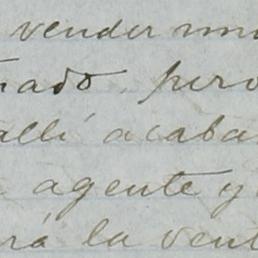 vender un
pero
allí acaba
agente y
la vent